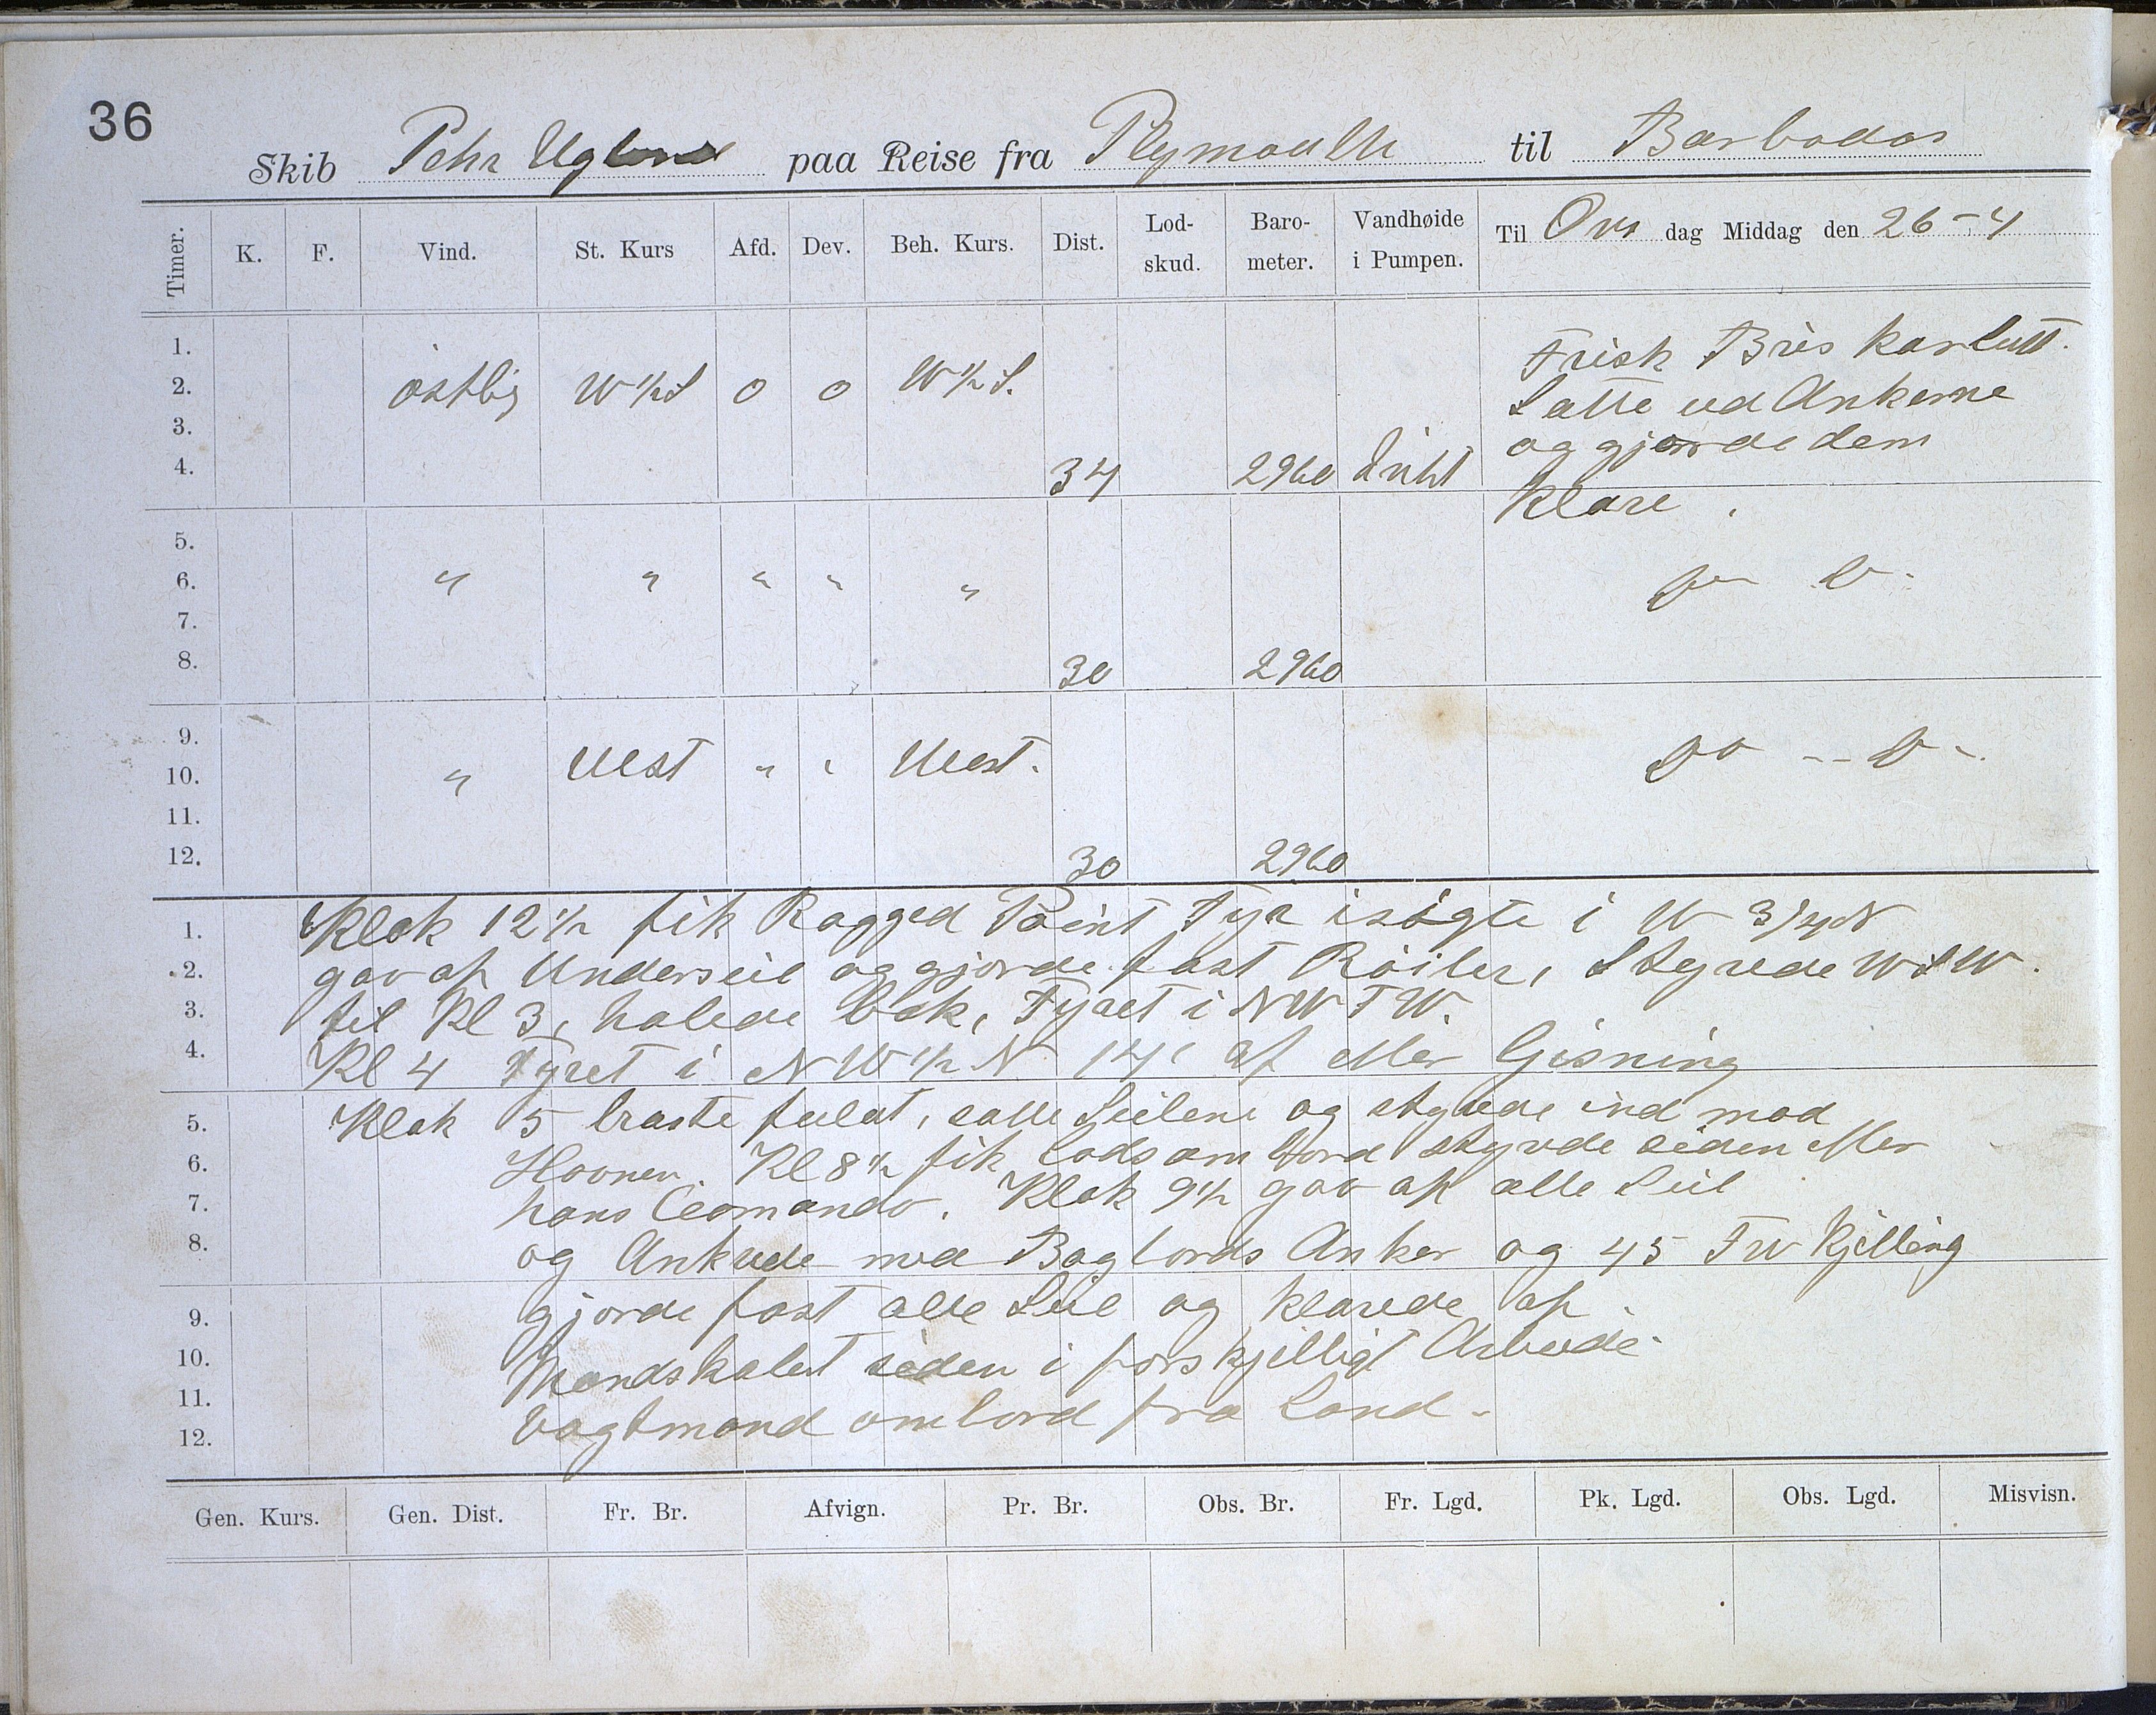 36
Skib Pehr Ugland paa Reise fra Plymouth til Barbados
Timer. K. F. Vind. St. Kurs Afd. Dev. Beh. Kurs. Dist. Lod-skud. Baro-meter. Vandhøide i Pumpen. Til Ons dag Middag den 26-4
1. Frisk Bris karluft.
2. östlig W ½ S 0 0 W ½ S. Satte ud Ankerne
3. og gjorde dem
4. 34 2960 Lidet
Klare.
5.
6. " " " " " Do Do.
7.
8. 30 2960
9.
10. " Vest " " Vest. Do -- Do -.
11.
12. 30 2960
1. Klok 12 ½ fik Ragged Point Fyr isigte i W 3/4 N
2. gav op Underseil og gjorde fast Röiler, Styrede WSW.
3. til Kl 3, halede bak, Fyret i NWTW.
4. Kl 4 Fyret i NW ½ N 14' af efter Gisning
5. Klok 5 braste fuldt, satte Seilene og styrede ind mod
6. Havnen. Kl 8 ½ fik Lods om bord styrede siden efter
7. hans Comando. Klok 9 ½ gav op alle Seil
8. og Ankrede med Bagbords Anker og 45 Fv Kjetting
9. gjorde fast alle Seil og klarede op.
10. Mandskabet siden i forskjelligt Arbeide
11. Vagtmand ombord fra Land.
12.
Gen. Kurs. Gen. Dist. Fr. Br. Afvign. Pr. Br. Obs. Br. Fr. Lgd. Pk. Lgd. Obs. Lgd. Misvisn.